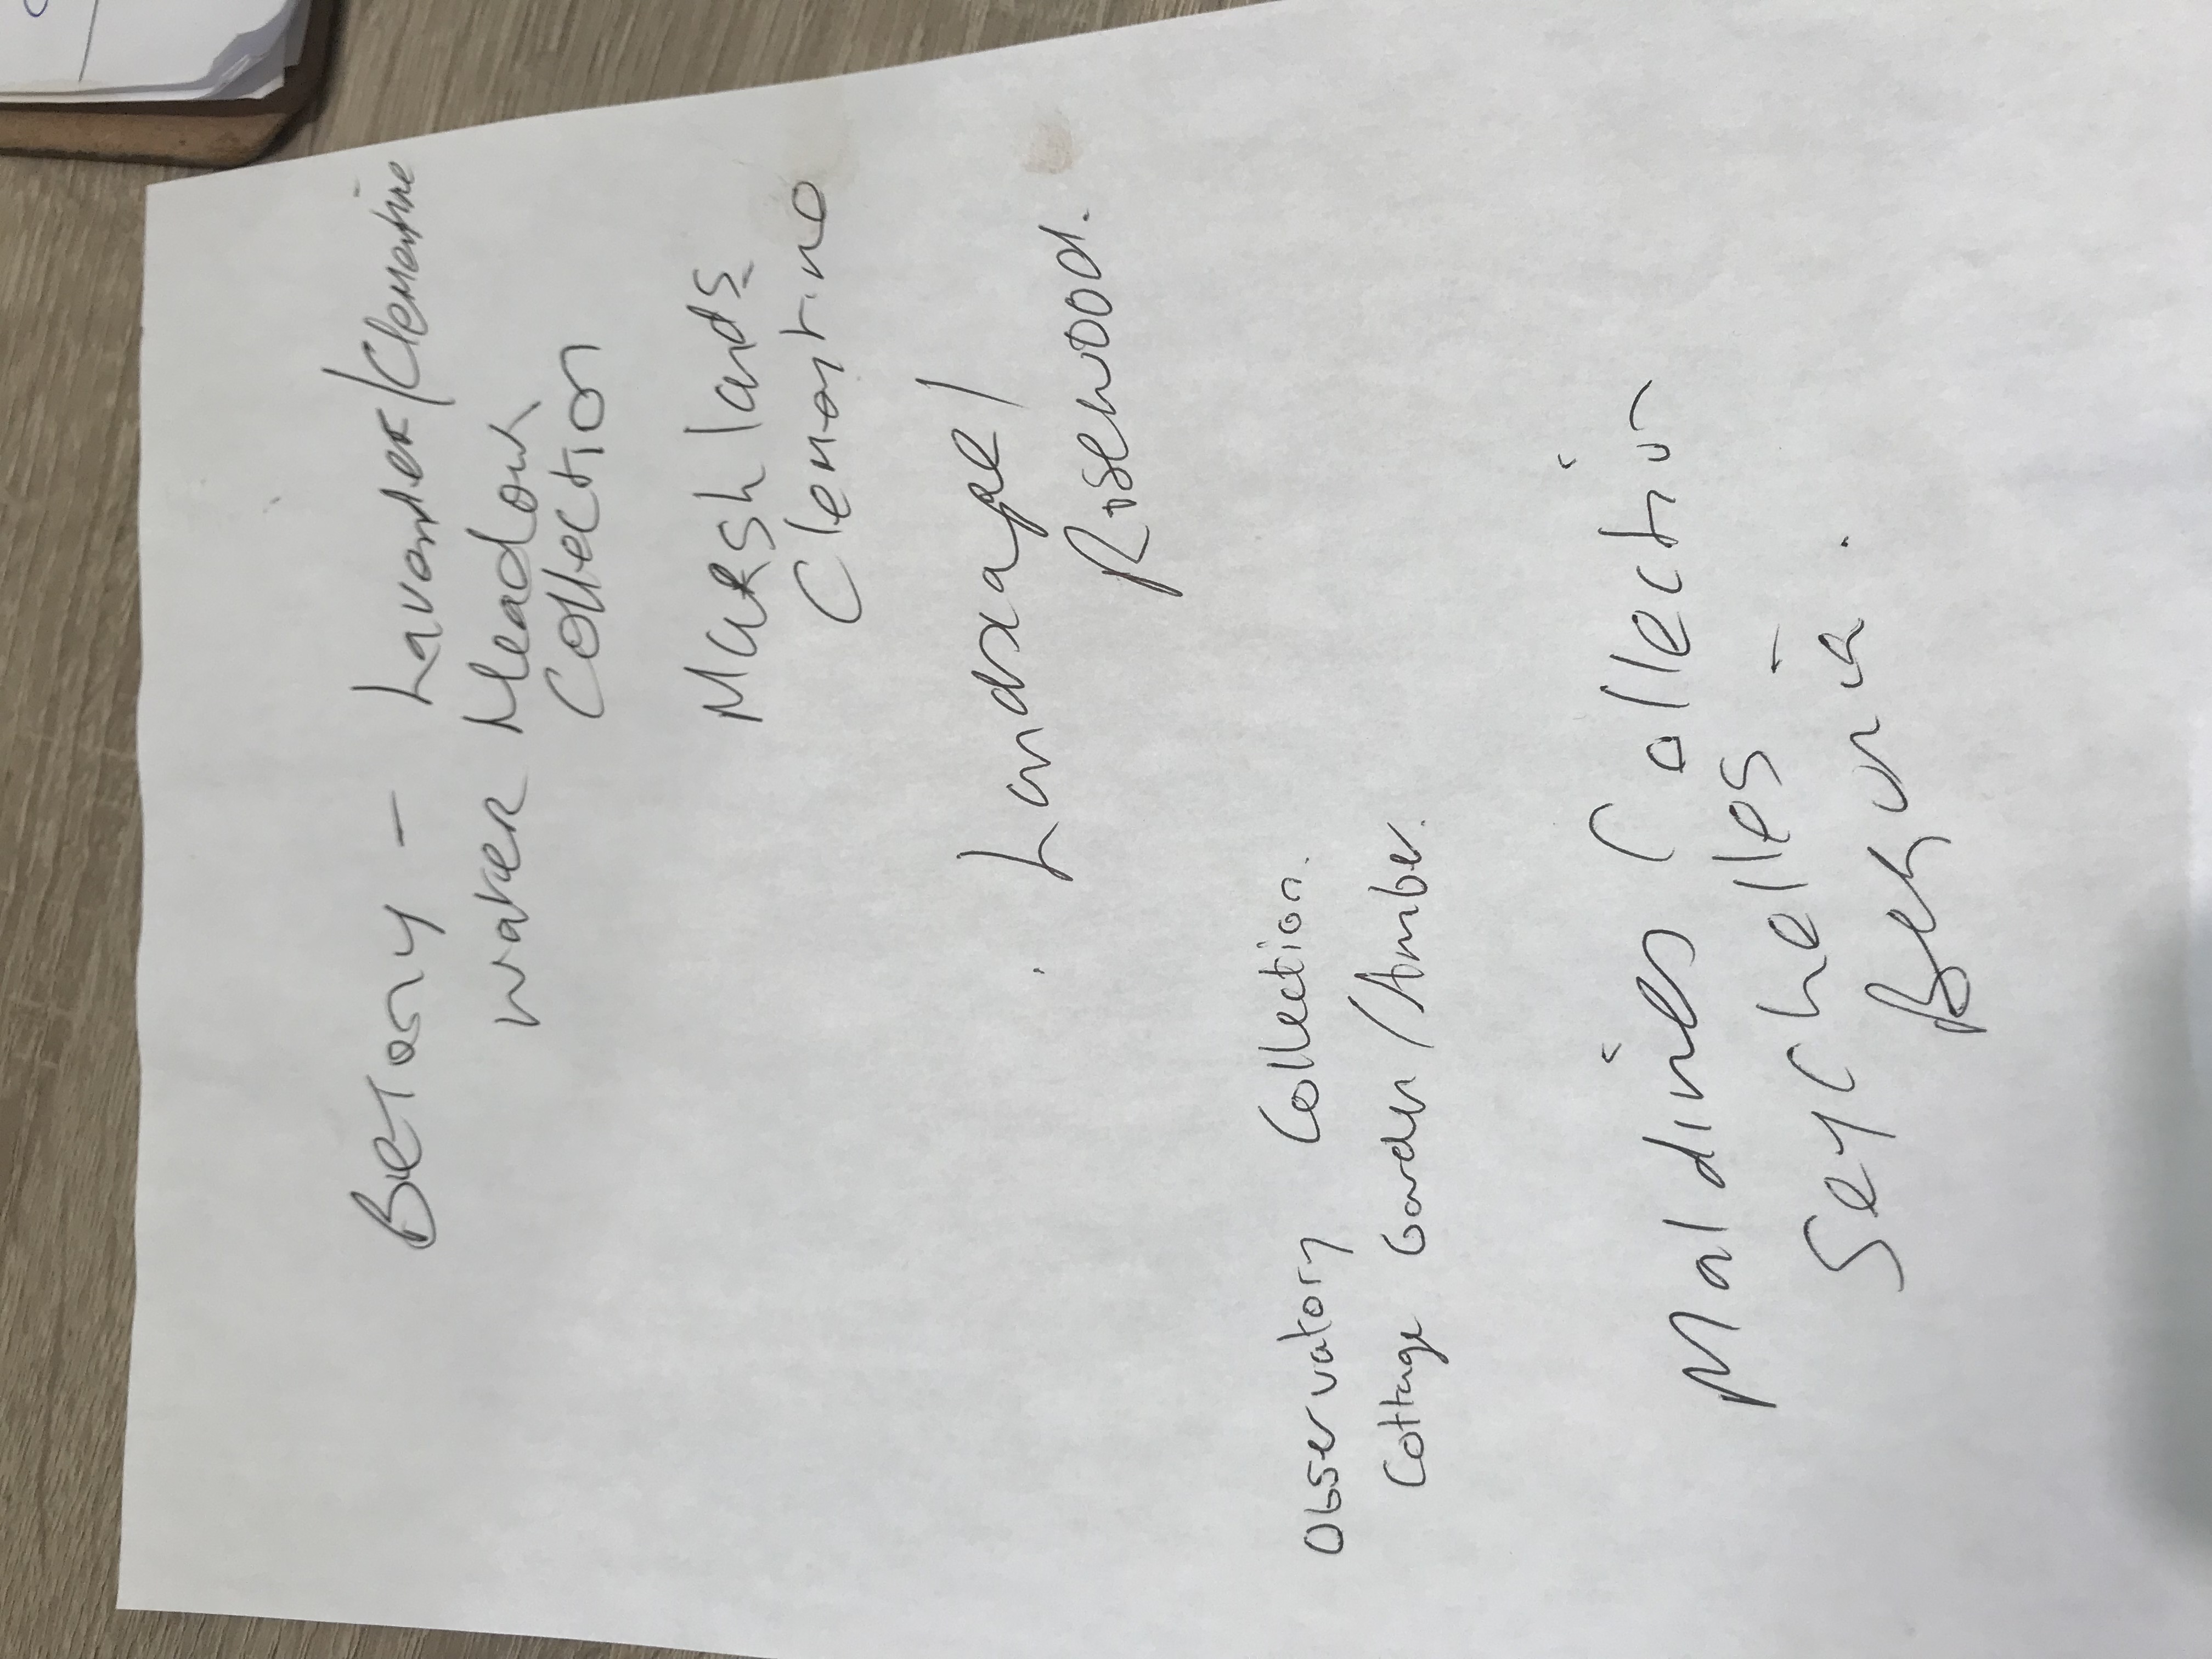 Betony - Lavender/Clementine
Water Meadow
Collection
Marshlands
Clementine
Landscape/
Rosewood.
Observatory Collection.
Cottage Garden/Amber.
Maldives Collection
Seychelles -